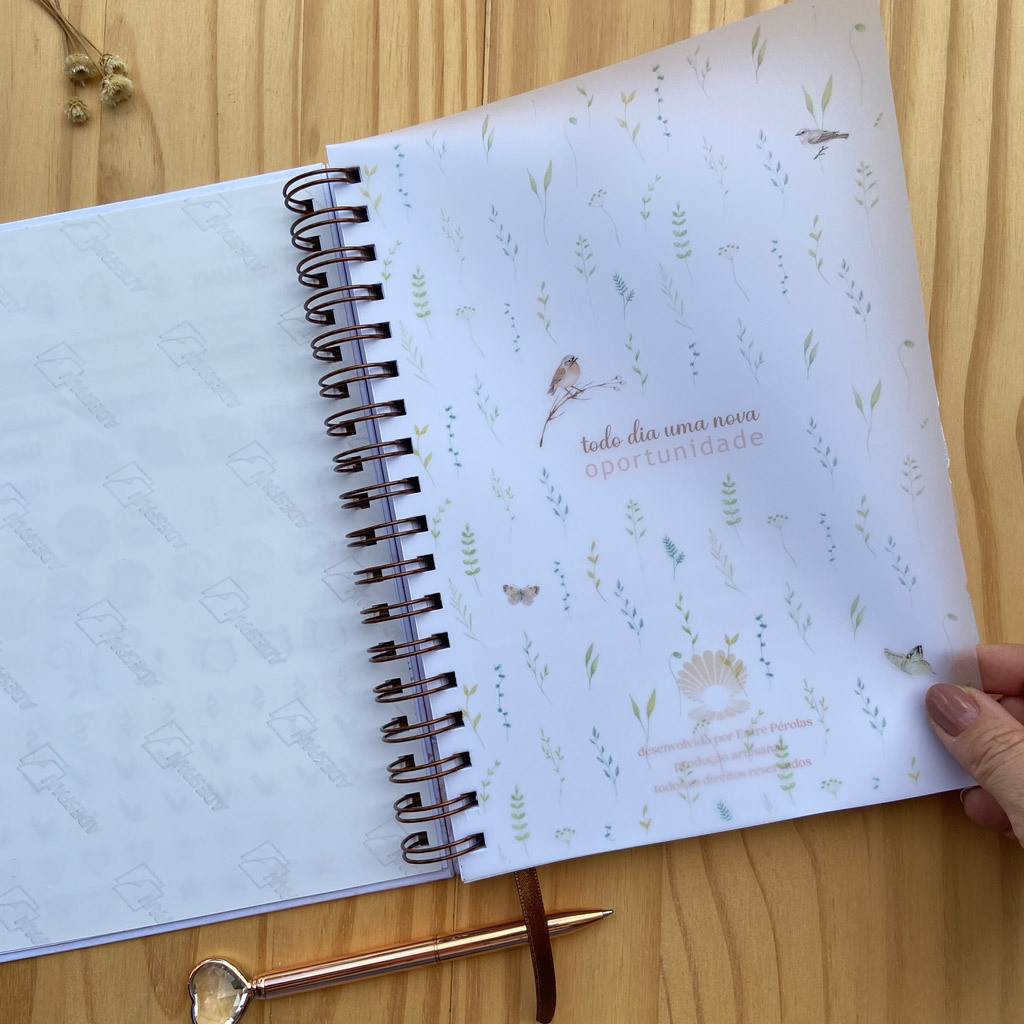 todo dia uma nova
oportunidade
desenvolvido por Entre Pérolas
produção artesanal
todos os direitos reservados